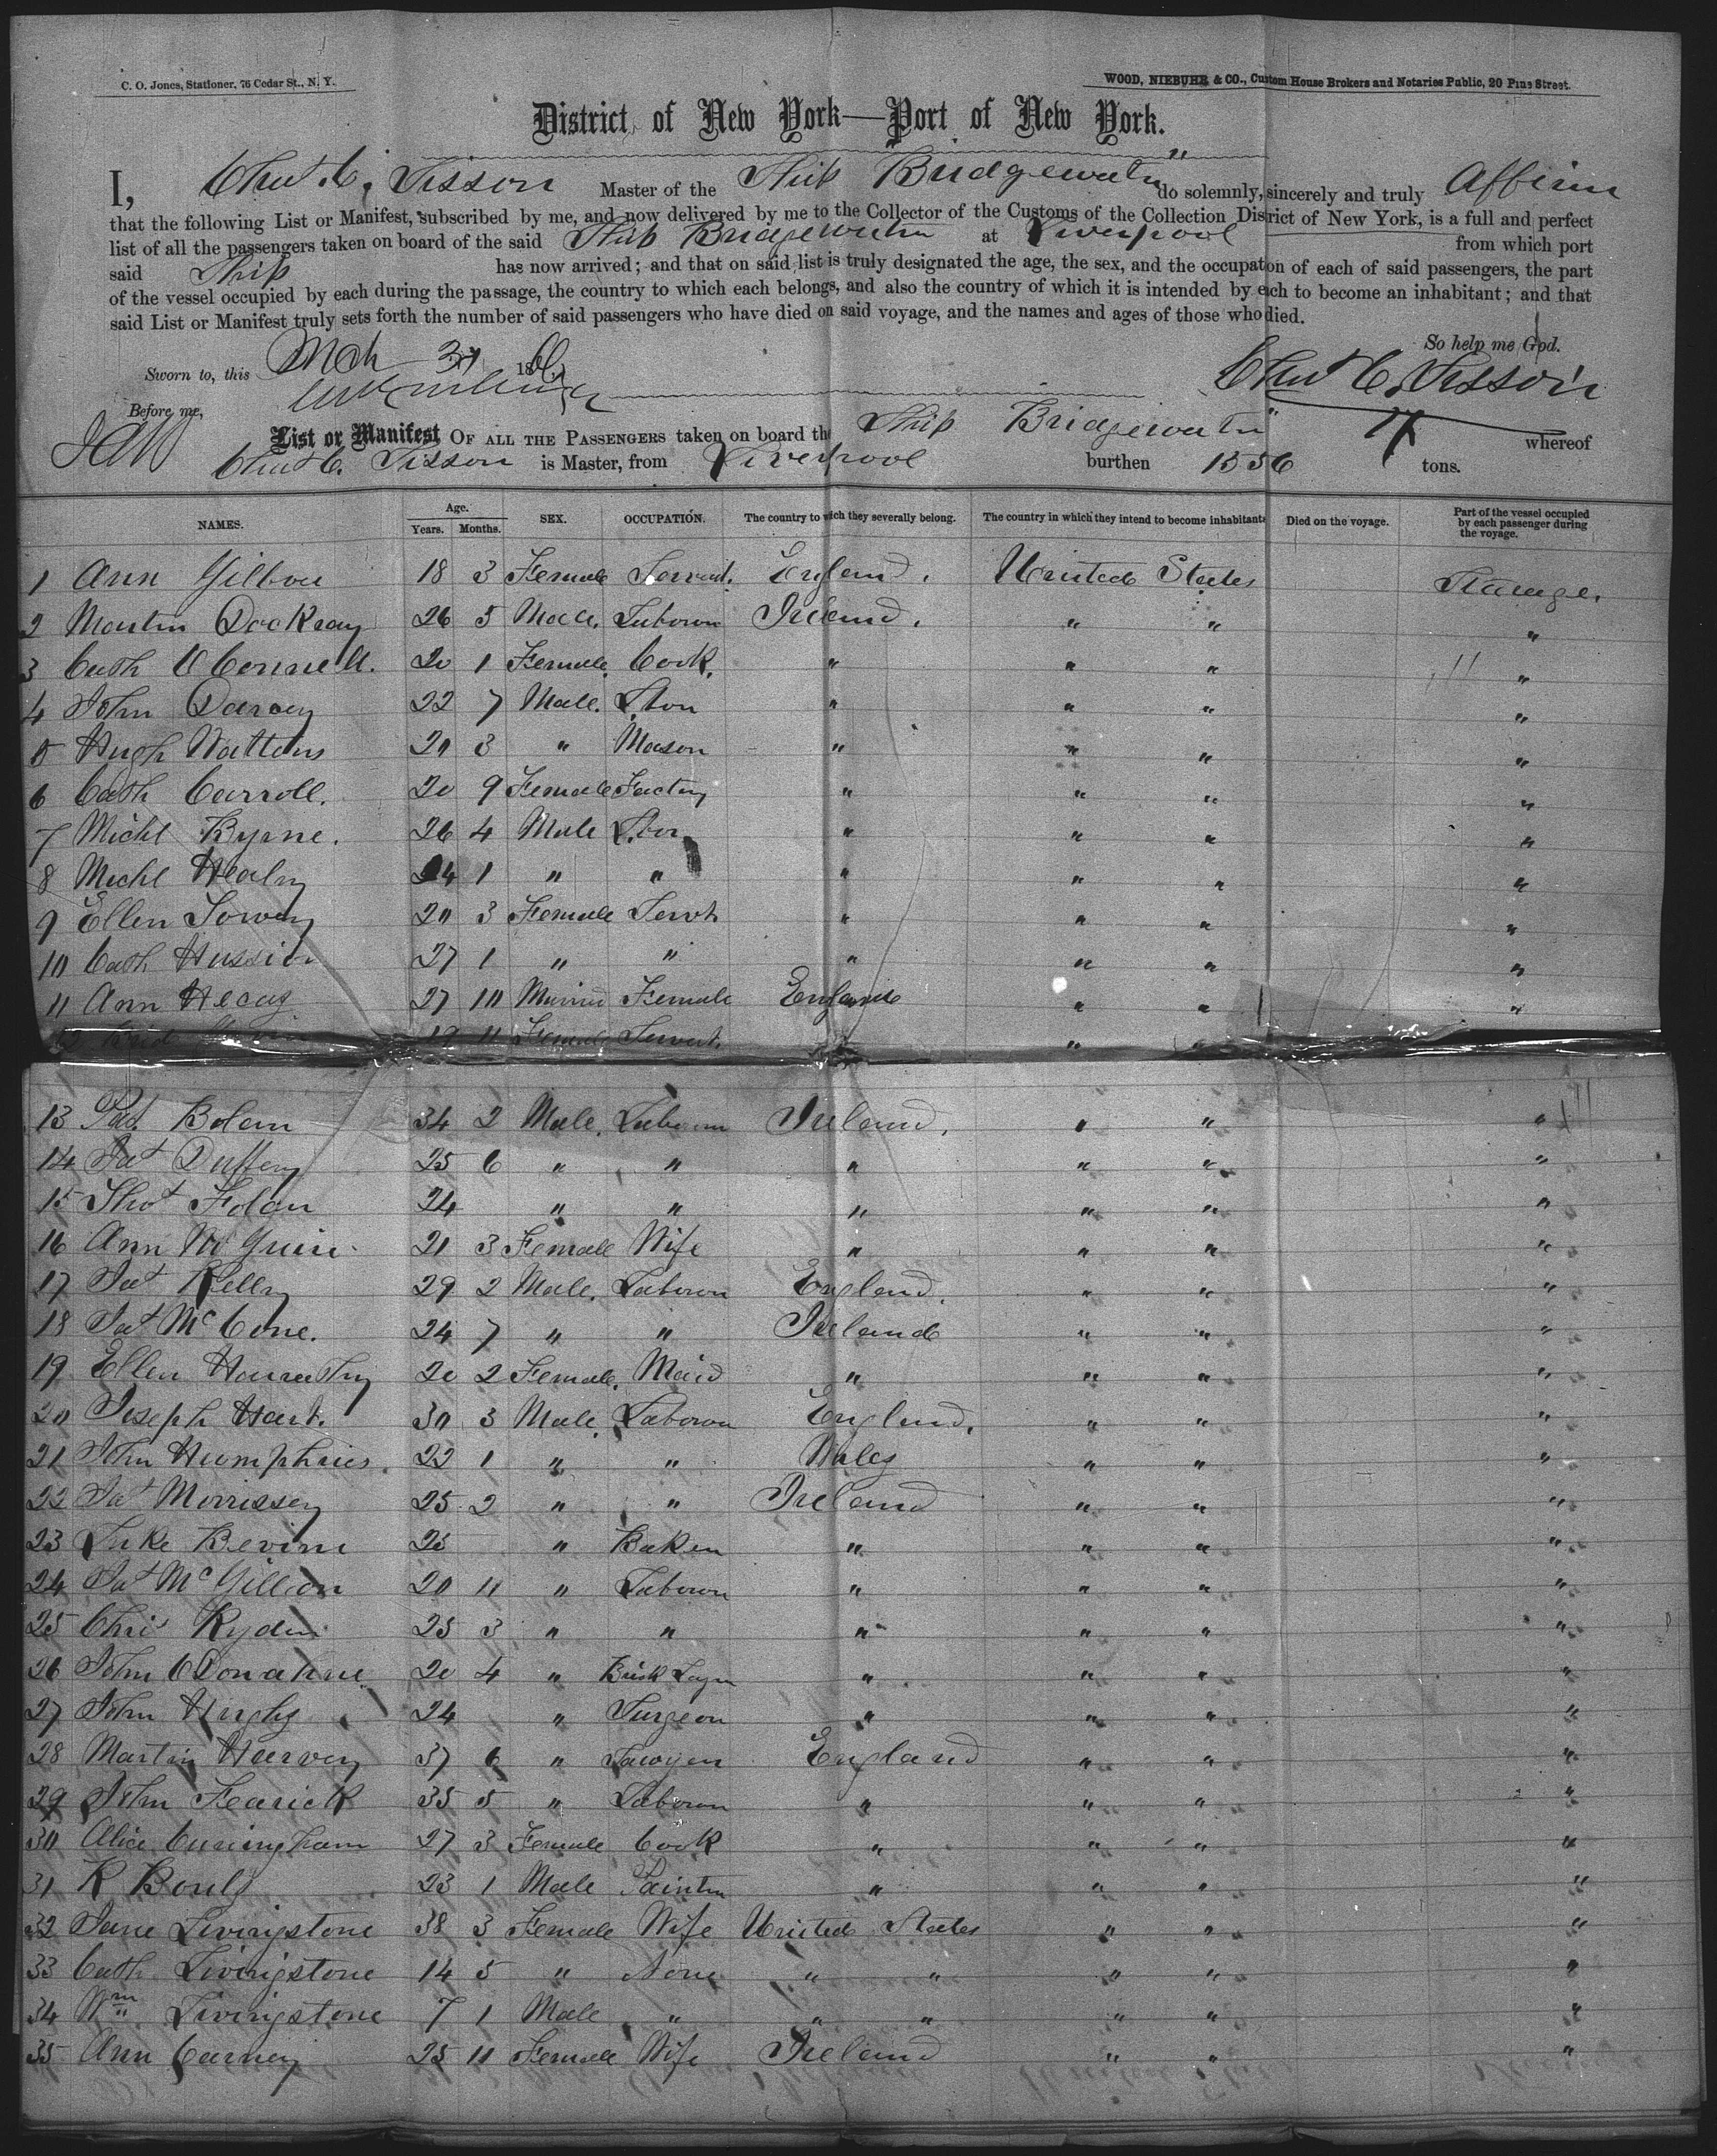 C. O. Jones, Stationer, 76 Cedar St., N. Y.
WOOD, NIEBUHR & CO., Custom House Brokers and Notaries Public, 20 Pine Street.
District of New York—Port of New York.
I, Chas. C. Sisson Master of the Ship "Bridgewater" do solemnly, sincerely and truly Affirm
that the following List or Manifest, subscribed by me, and now delivered by me to the Collector of the Customs of the Collection District of New York, is a full and perfect
list of all the passengers taken on board of the said Ship Bridgewater at Liverpool from which port
said Ship has now arrived; and that on said list is truly designated the age, the sex, and the occupaton of each of said passengers, the part
of the vessel occupied by each during the passage, the country to which each belongs, and also the country of which it is intended by each to become an inhabitant; and that
said List or Manifest truly sets forth the number of said passengers who have died on said voyage, and the names and ages of those who died.
So help me God.
Sworn to, this Mch 31 186
Chas C. Sisson
Before me,
List or Manifest OF ALL THE PASSENGERS taken on board the Ship Bridgewater" whereof
Chas C. Sisson is Master, from Liverpool burthen 1556 tons.
NAMES. Age. Years. Months. SEX. OCCUPATION. The country to which they severally belong. The country in which they intend to become inhabitants Died on the voyage. Part of the vessel occupied by each passenger during the voyage.
1 Ann 18 3 Female Servant. England. United States Steerage.
2 Martin Dockray 26 5 Male. Labourer Ireland. " " "
3 Cath O Connell. 20 1 Female. Cook. " " " "
4 John Darcey 22 7 Male. " " " "
5 Hugh Watters 20 3 " Mason " " " "
6 Cath Carroll. 20 9 Female Factory " " " "
7 Michl Byrne. 26 4 Male " " " "
8 Michl Healy 24 1 " " " " " "
9 Ellen 20 3 Female Servt " " " "
10 Cath Hussion 27 1 " " " " " "
11 Ann 27 10 Married Female England " " "
12 19 11 Female Servant. " "
13 Pat. Bolan 34 2 Male. Labourer Ireland. " " "
14 Pat Duffey 25 6 " " " " " "
15 Thos Folan 24 " " " " " "
16 Ann McGuin 21 3 Female Wife " " " "
17 Pat Kelly 29 2 Male. Labourer England. " " "
18 Pat McCone. 24 7 " " Ireland " " "
19 Ellen 20 2 Female. Maid " " " "
20 Joseph Hart. 30 3 Male. Labourer England. " " "
21 John Humphries. 22 1 " " Wales " " "
22 Pat Morrissey 25 2 " " Ireland " " "
23 Luke Bevins 25 " Baker " " " "
24 Pat McGillion 20 11 " Labourer " " " "
25 Chris Ryder 25 3 " " " " " "
26 John O Donahue 20 4 " Brick Layer " " " "
27 John Hughs 24 " Surgeon " " " "
28 Martin Harvey 37 6 " Sawyer England " " "
29 John Fearick 35 5 " Labourer " " " "
30 Alice Cuningham 27 3 Female Cook " " " "
31 R 23 1 Male Painter " " " "
32 Jane Livingstone 38 3 Female Wife United States " " "
33 Cath. Livingstone 14 5 " None " " " " "
34 Wm Livingstone 7 1 Male " " " " " "
35 Ann Carney 25 11 Female Wife Ireland " " "